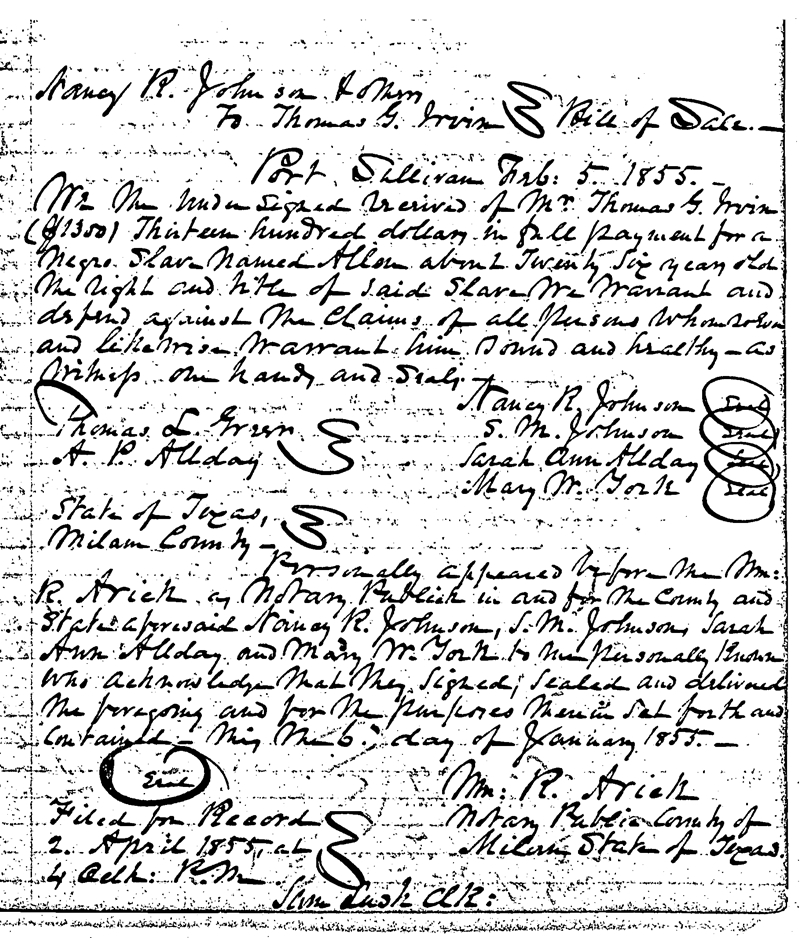 Nancy R. Johnson & others
To Thomas G. Irvin } Bill of Sale. —
Port Sullivan Feb: 5. 1855. —
We the under signed received of Mr Thomas G. Irvin
($1300) Thirteen hundred dollars in full payment for a
Negro Slave Named Allen about Twenty Six years old
the right and title of said Slave We Warrant and
defend against the Claims of all persons whomsoever
and likewise Warrant him Sound and healthy — as
Witness our hands and Seals —
Nancy R. Johnson Seal
Thomas L. Green S. M. Johnson Seal
A. P. Allday Sarah Ann Allday Seal
Mary W. York Seal
State of Texas,
Milam County —
Personally appeared before me Wm:
R. Arick a Notary Publick in and for the County and
State aforesaid Nancy R. Johnson, S. M. Johnson, Sarah
Ann Allday and Mary W. York to me personally Known
who acknowledge that they Signed, Sealed and delivered
the foregoing and for the purposes therein Set forth and
Contained — this the 6th day of January 1855. —
Seal
Wm: R. Arick
Filed for Record Notary Public County of
2. April 1855, at Milam State of Texas.
4 Oclk: P.M.
Sam Lusk Clk: